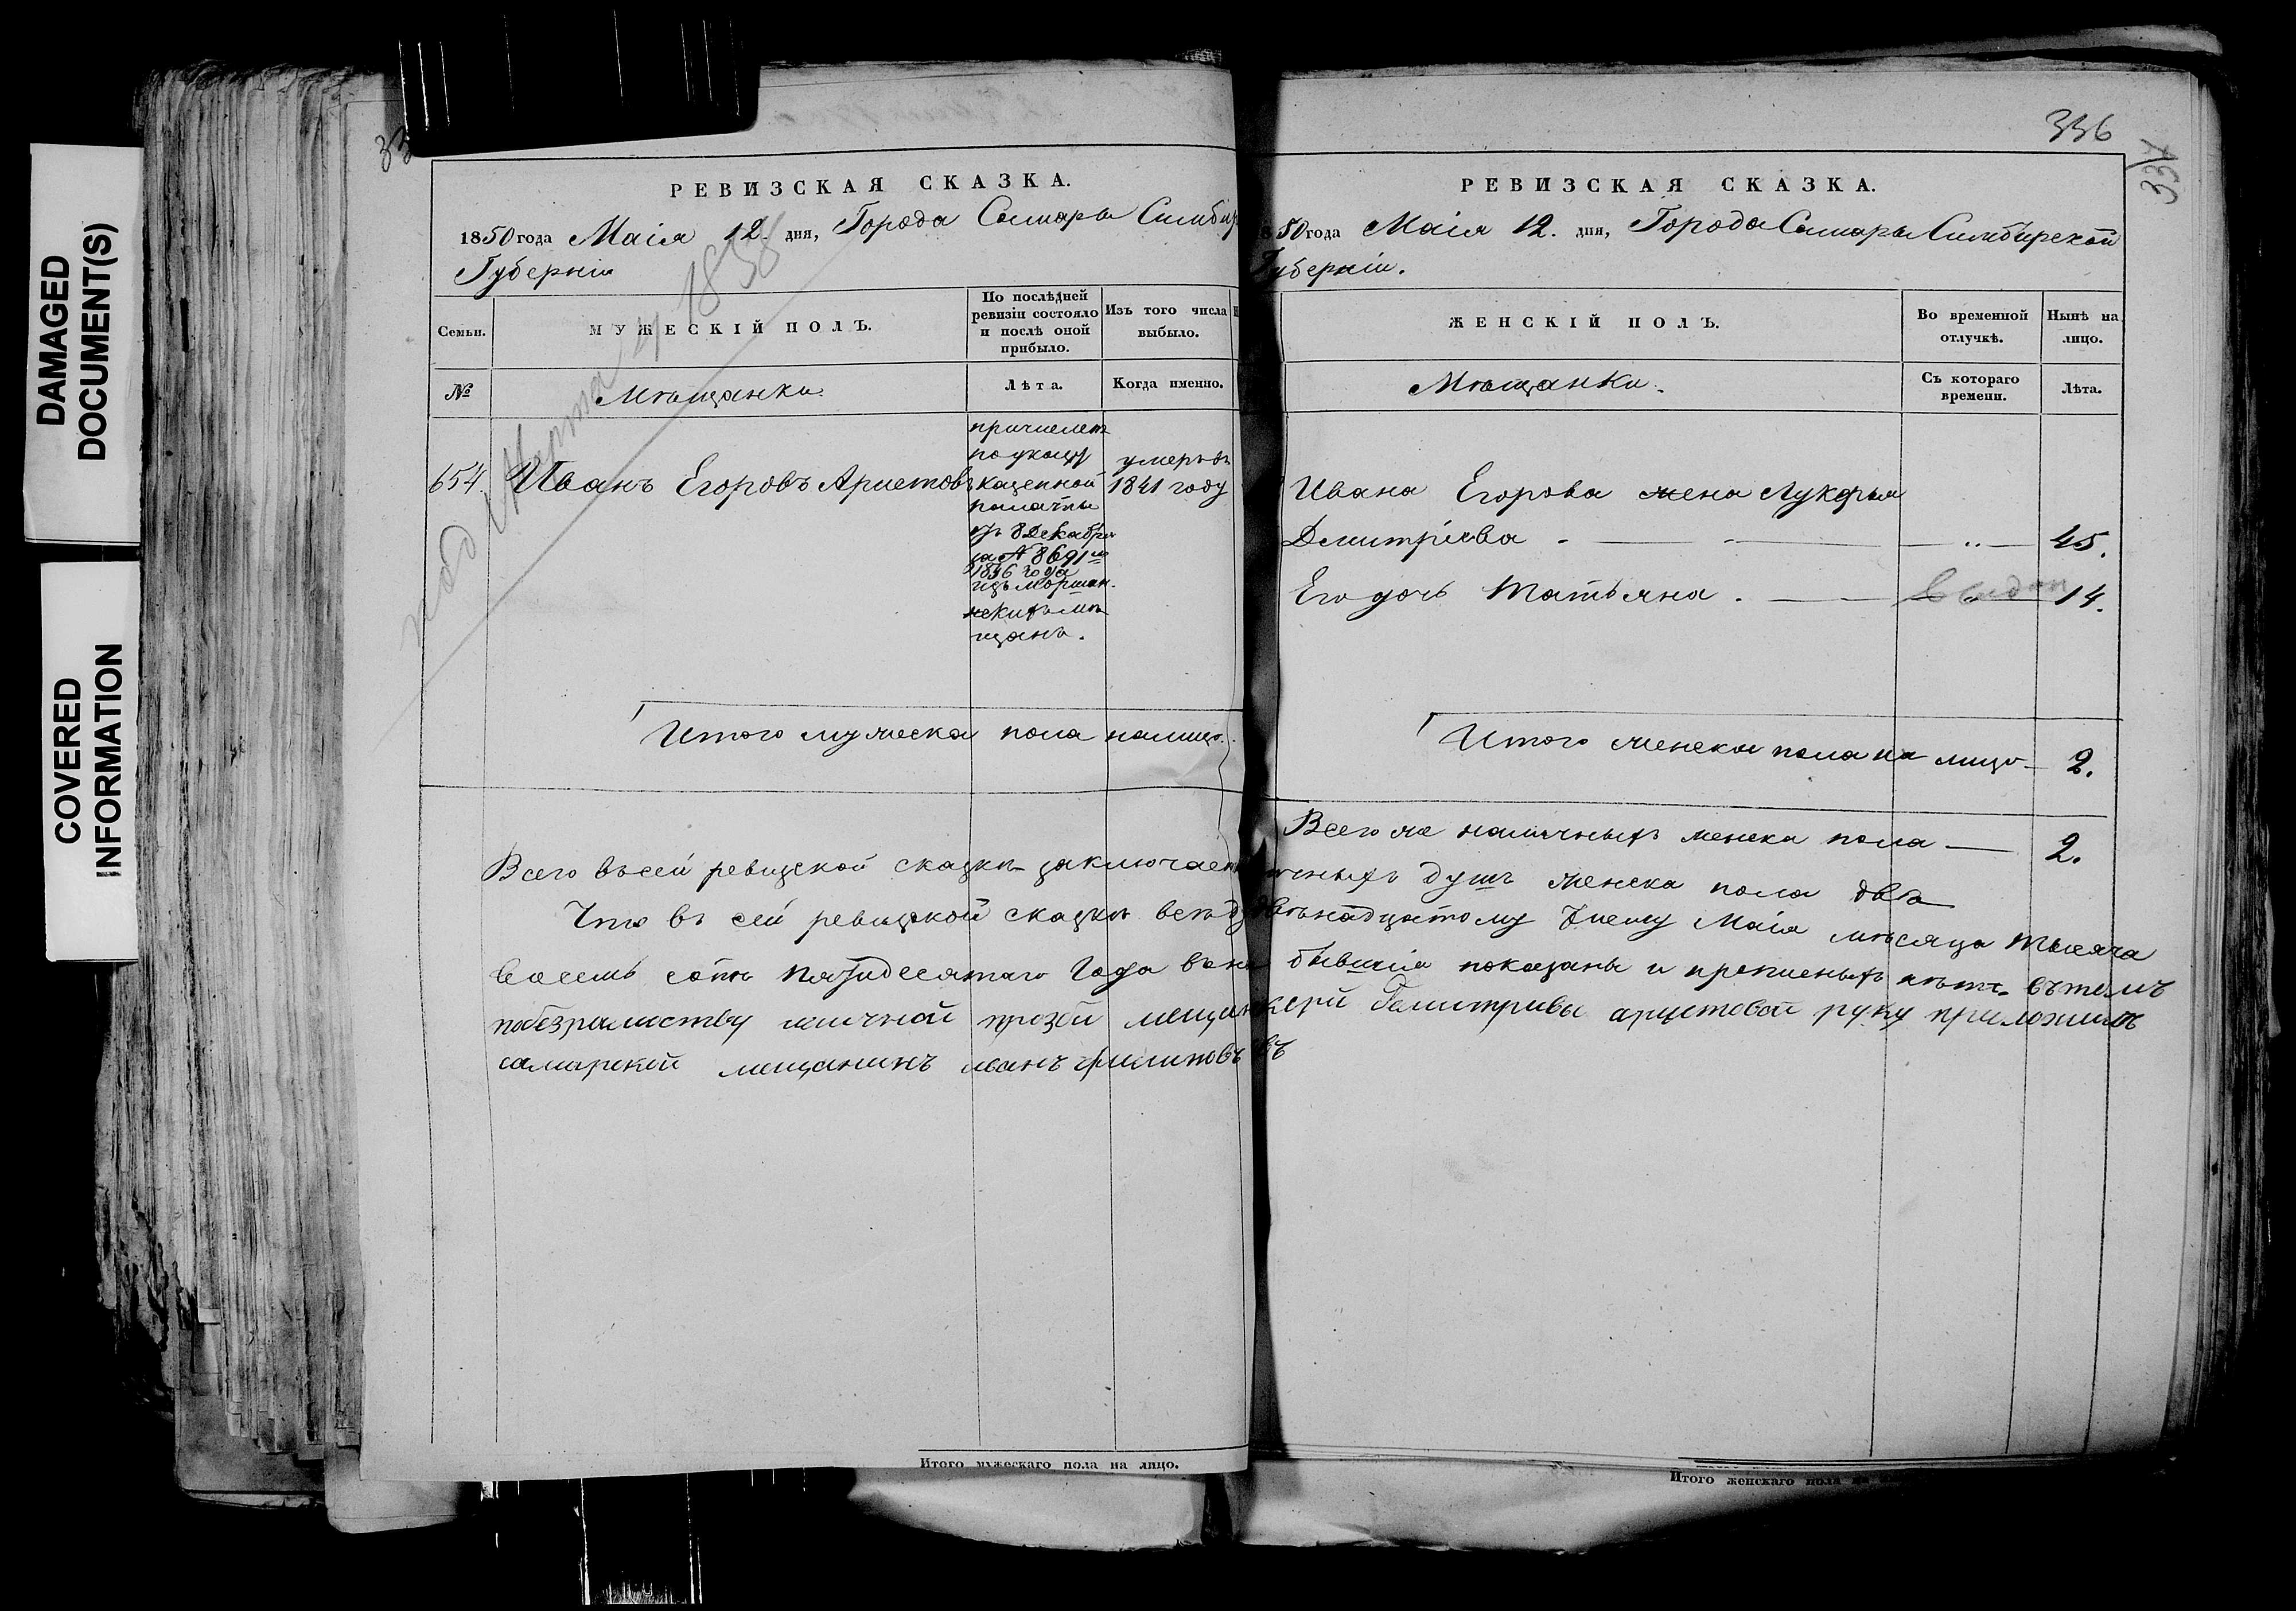 DAMAGED
DOCUMENT(S)
COVERED
INFORMATION
33
РЕВИЗСКАЯ СКАЗКА.
1850 года Маія 12. дня, Города Самары Симбир
Губерніи
1858
Семьи.
МУЖЕСКІЙ ПОЛЪ.
По послѣдней
ревизіи состояло
и послѣ оной
прибыло.
Изъ того числа
выбыло.
№
Мѣщанки.
Лѣта.
Когда именно.
654.
Иванъ Егоровъ Аристовъ
причислен
по указу
казенной
палаты
8 Декабря
за № 8691
1836 года
изъ моршан
скихъ мѣ
щанъ.
умеръ въ
1841 году
Итого мужеска пола налицо.
Всего въ сей ревизской сказкѣ заключает
Что въ сей ревизской сказкѣ всѣ
восемь сотъ пятидесятаго года
побезграмству личной прозби мещан
самарской мещанинъ иванъ филиповъ
Итого мужескаго пола на лицо.
336
337
РЕВИЗСКАЯ СКАЗКА.
50 года Маія 12. дня, Города Самары Симбирской
Губерніи.
ЖЕНСКІЙ ПОЛЪ.
Во временной
отлучкѣ.
Нынѣ на
лицо.
Мѣщанки.
Съ котораго
времени.
Лѣта.
Ивана Егорова жена Лукерья
Дмитріева - — - — „ — 45.
Его дочь Татьяна. — — „ — 14.
Итого женска пола на лицо — 2.
Всего же наличныхъ женска пола — 2.
чныхъ душъ женска пола две
двѣнадцатому числу Маія мѣсяца тысяча
бывшія показаны и прописныхъ нѣтъ въ томъ
Дмитривы аристовой руку приложилъ
Итого женскаго пола